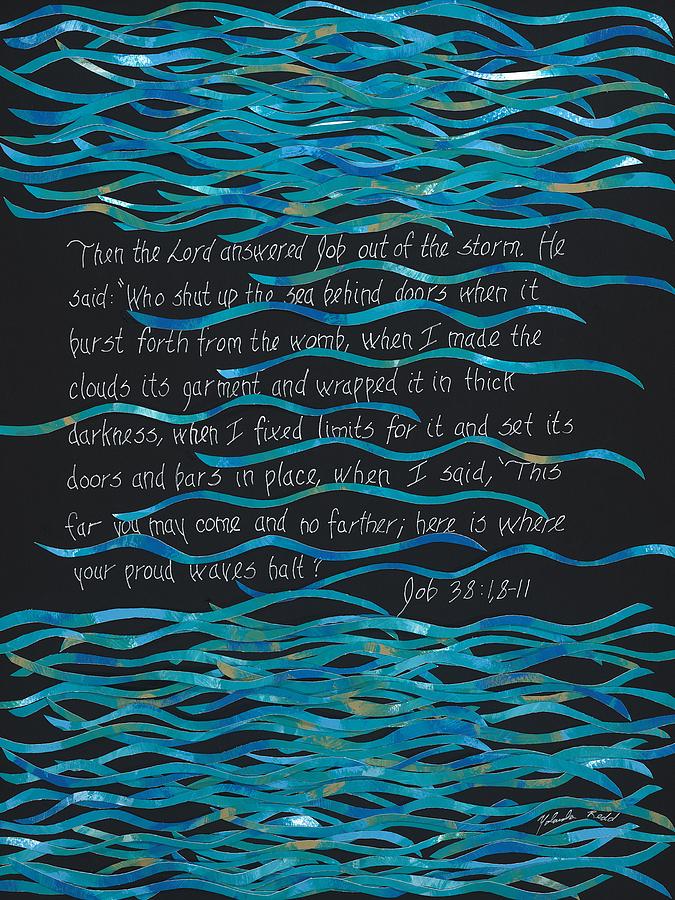 Then the Lord answered Job out of the storm. He
said: "Who shut up the sea behind doors when it
burst forth from the womb, when I made the
clouds its garment and wrapped it in thick
darkness, when I fixed limits for it and set its
doors and bars in place, when I said, "This
far you may come and no farther; here is where
your proud waves halt?
Job 38:1,8-11
Yolanda Redd